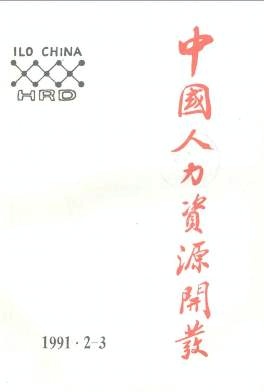 ILO CHINA
HRD
中國人力資源開發
1991·2-3